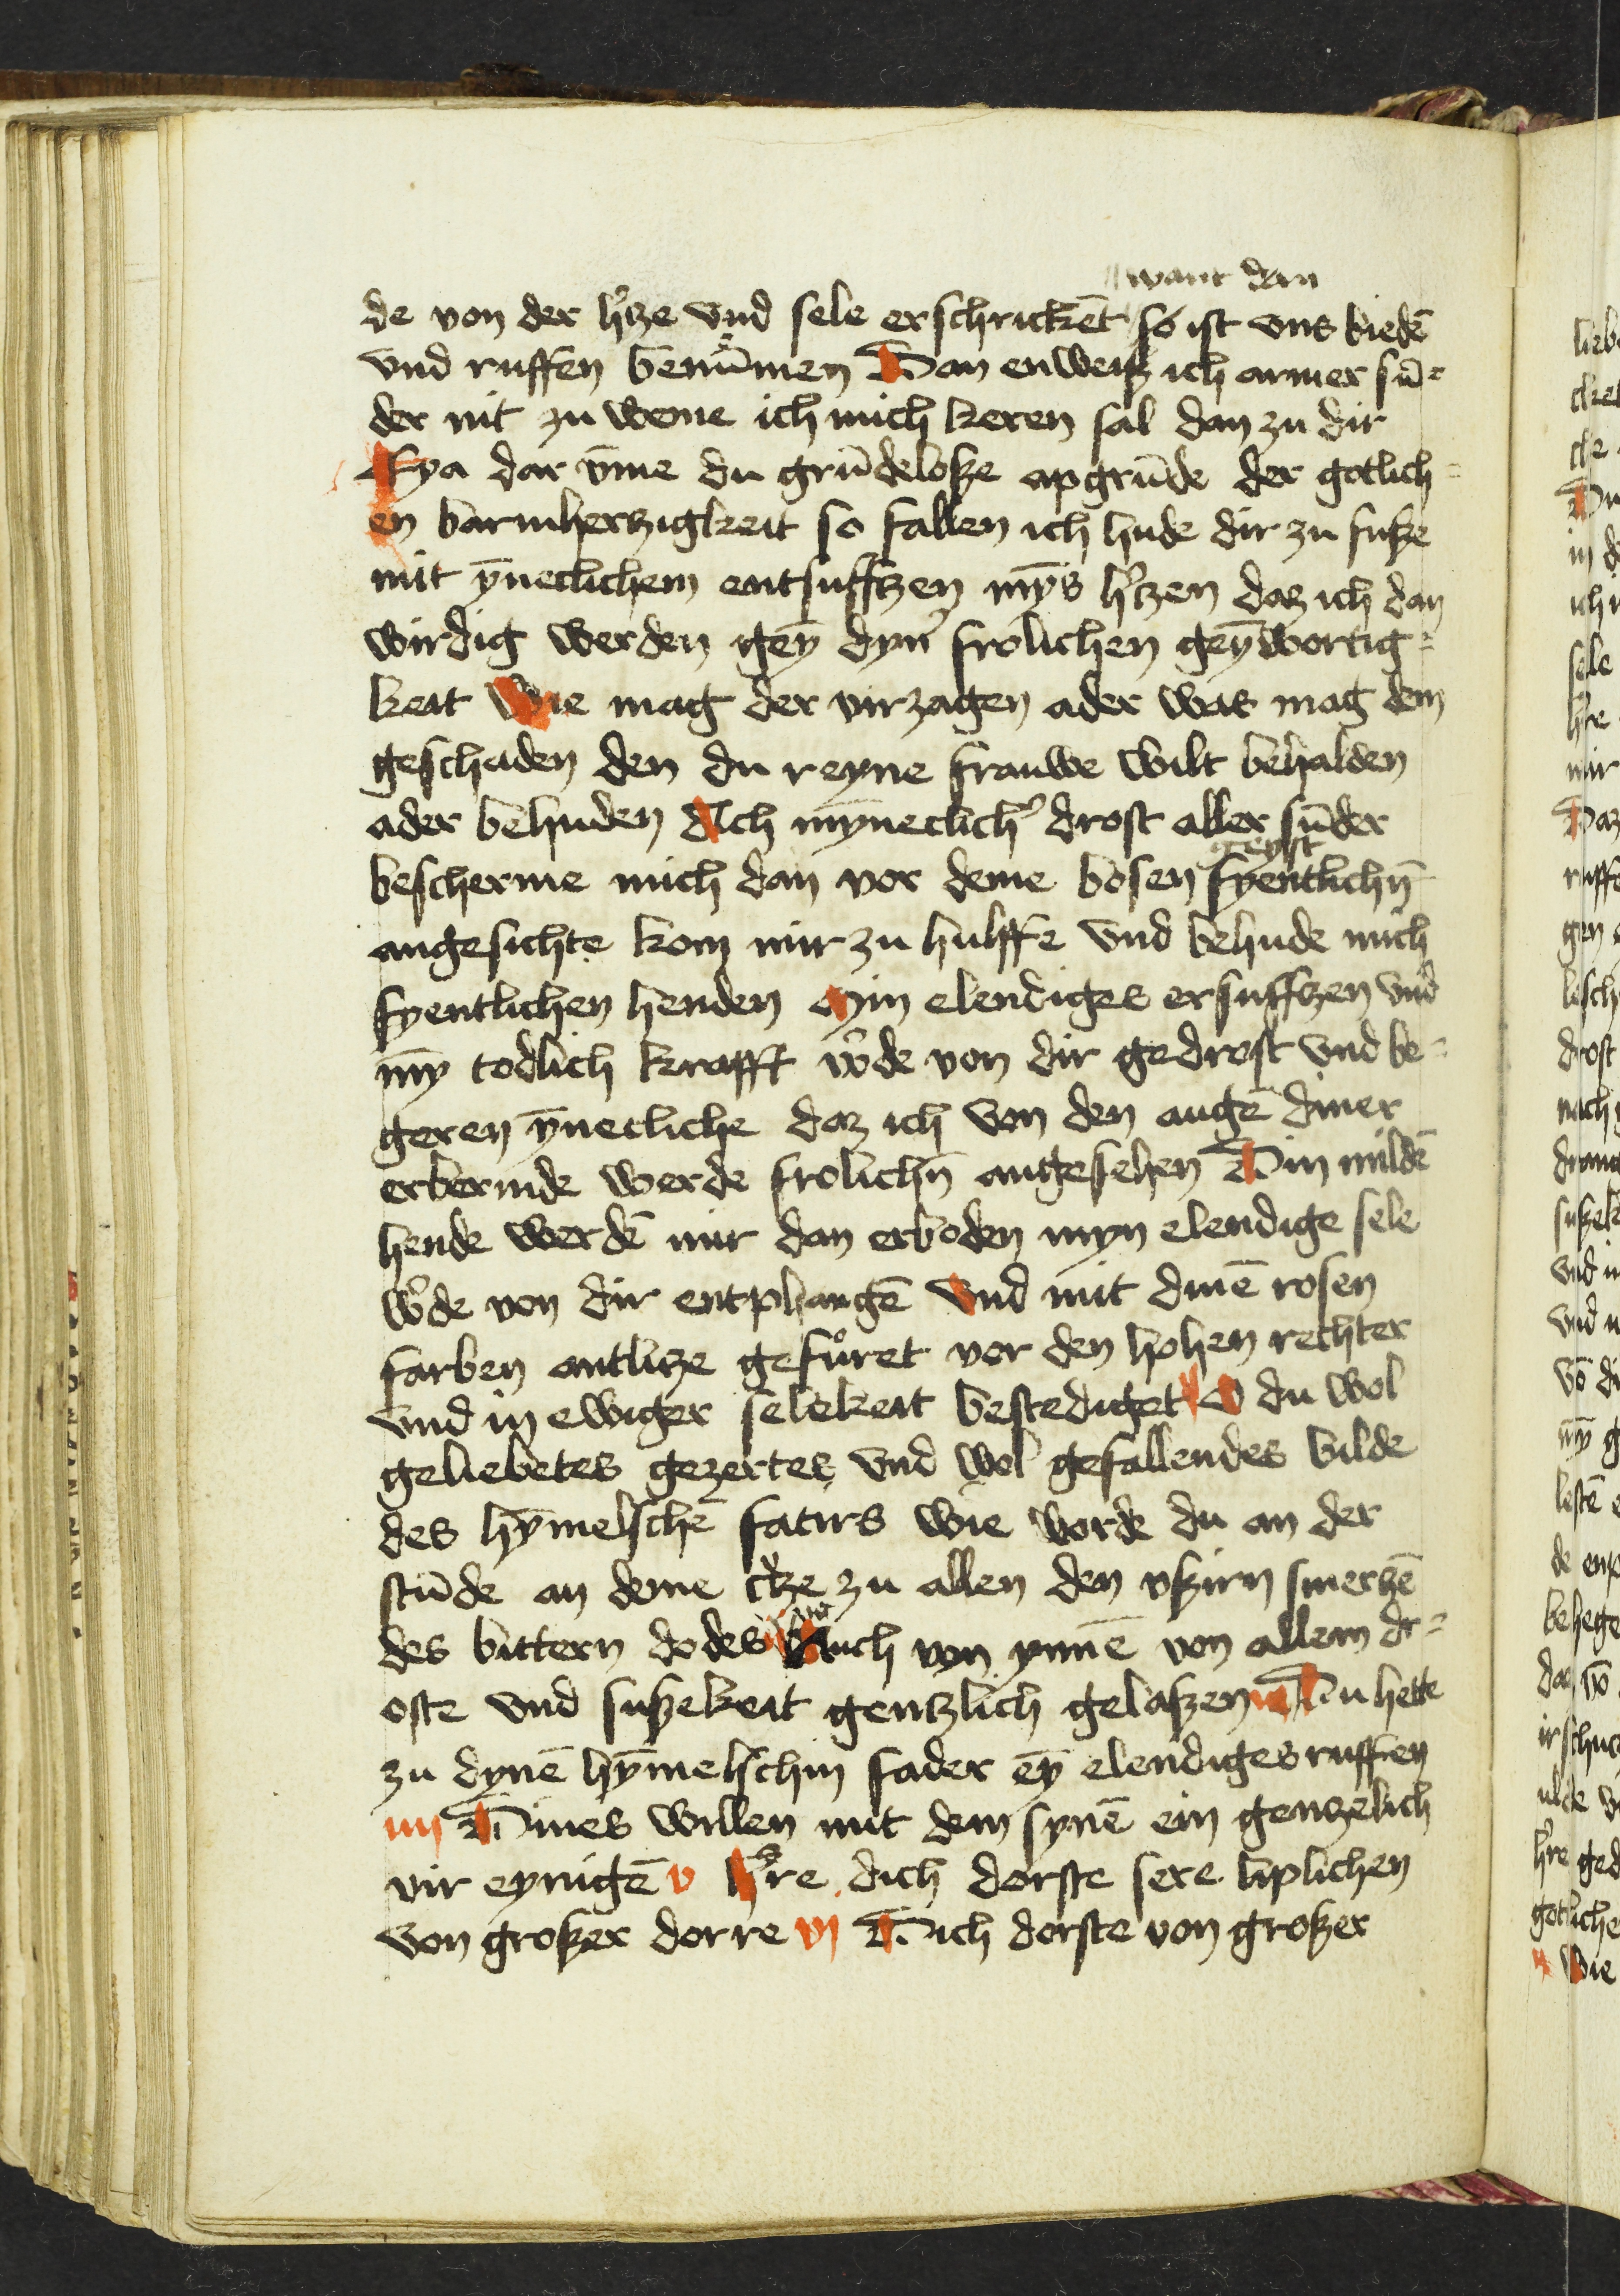 want dan
de von der h'tze vnd sele erschrickēt so ist vns biedē
vnd ruffen benūmen Dan enweisz ich armer sū=
der nit zu weme ich mich keren sal dan zu dir
Eya dar v̄me du grūdelosze apgrūde der gotlich=
en barmherzigkeit so fallen ich hude dir zu fusze
mit ȳneclichem entsufftzen mȳs h'tzen daz ich dan
wirdig werden geȳ dyn' frolichen geȳwortig=
keit Wie mag der virzagen ader was mag dem
geschaden den du reyne frauwe wilt behalden
ader behuden Ach mȳneclich' drost aller sūder
bescherme mich dan vor deme bosen geyst fyentlichn̄
angesichte kom mir zu hulffe vnd behude mich
fyentlichen henden Min elendiges ersufftzen vnd
mȳ todlich krafft w'de von dir gedrost vnd be=
geren ȳnecliche daz ich von den augē diner
erbermde werde frolichn̄ angesehen Din mildē
hende werdē mir dan erboden myn elendige sele
w'de von dir entphangē Vnd mit dinē rosen
farben antlitze gefůret vor den hohen rechter
vnd in ewiger selekeit bestediget O du wol
geliebetes gezertes vnd wol gefallendes bilde
des hȳmelschē fatirs wie worde du an der
stūde an deme c'tze zu allen den vszirn smerzē
des bittern dodes auch vyn ynnē von allem dr=
oste vnd suszekeit gentzlich gelaszen iii Du hette
zu dynē hȳmelschin fader eȳ elendiges ruffen
iiij Dines willen mit dem synē ein gentzelich
vir eynigē v h're dich dorste sere liplichen
von groszer dorre vj Dich dorste von groszer